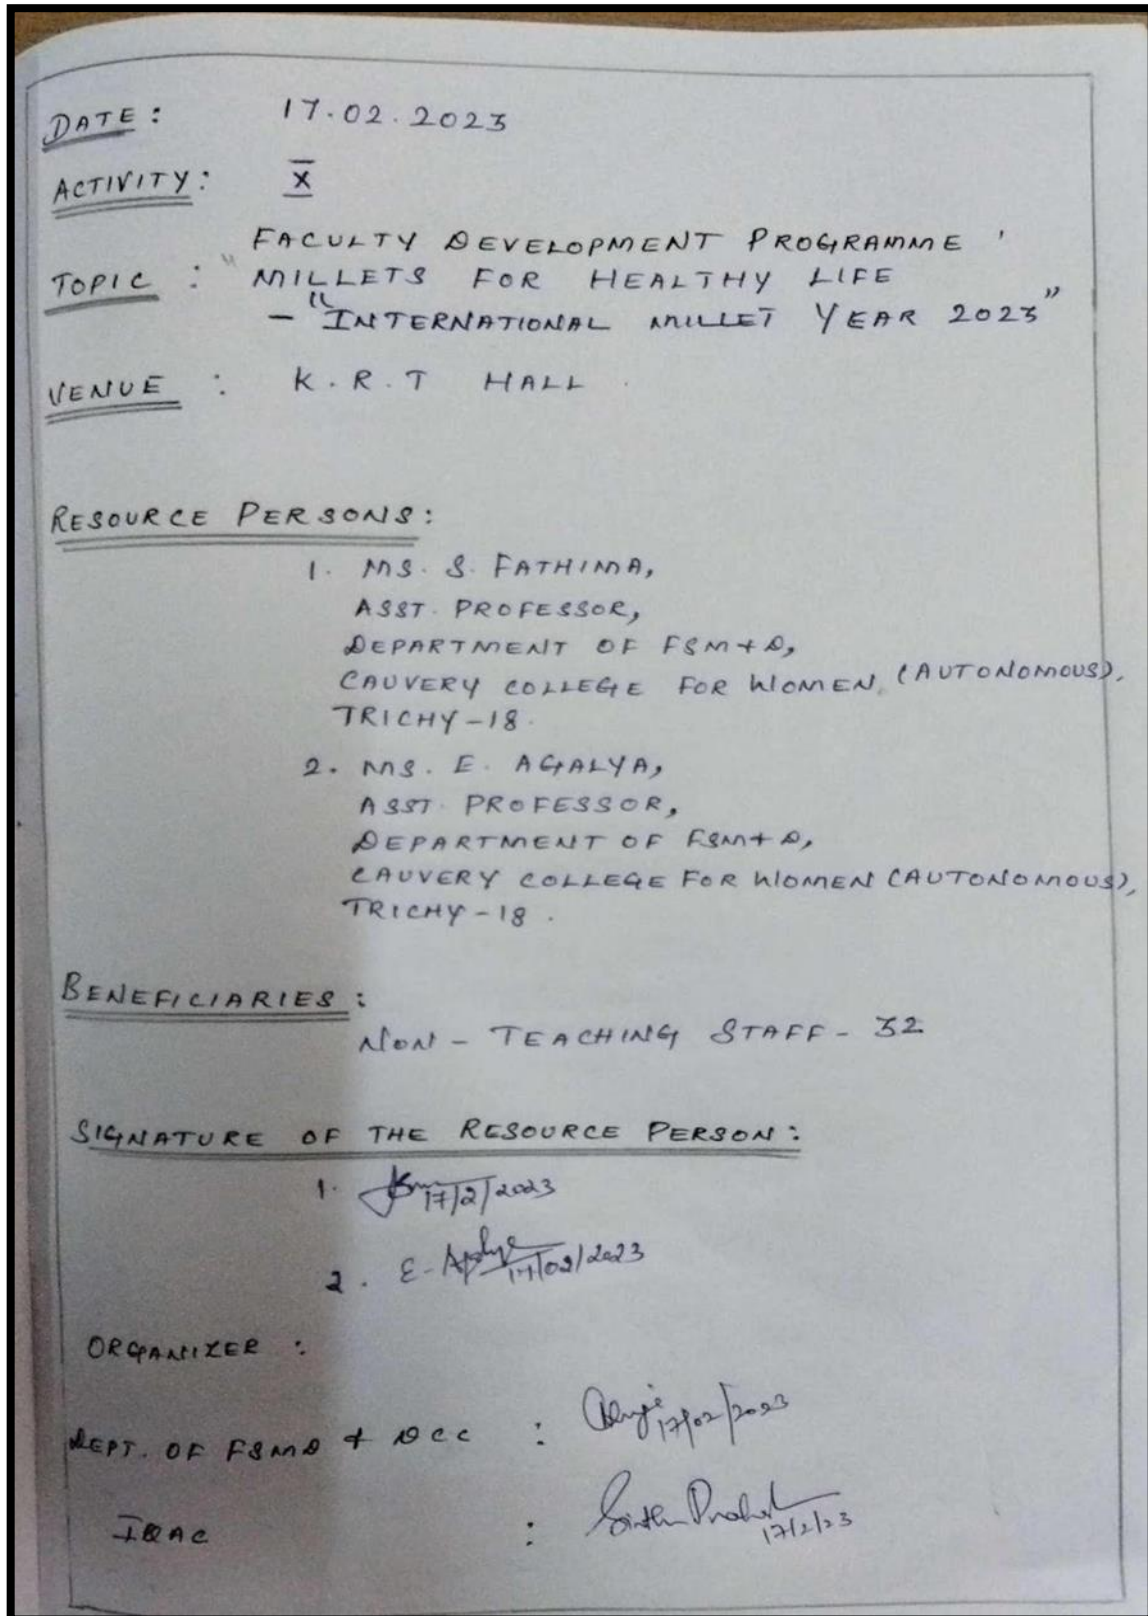 DATE : 17.02.2023
ACTIVITY : X
FACULTY DEVELOPMENT PROGRAMME '
TOPIC : " MILLETS FOR HEALTHY LIFE
- "INTERNATIONAL MILLET YEAR 2023"
VENUE : K.R.T HALL.
RESOURCE PERSONS :
1. MS. S. FATHIMA,
ASST. PROFESSOR,
DEPARTMENT OF FSM+D,
CAUVERY COLLEGE FOR WOMEN, (AUTONOMOUS),
TRICHY-18.
2. MS. E. AGALYA,
ASST. PROFESSOR,
DEPARTMENT OF FSM+D,
CAUVERY COLLEGE FOR WOMEN (AUTONOMOUS),
TRICHY-18.
BENEFICIARIES :
NON - TEACHING STAFF - 32
SIGNATURE OF THE RESOURCE PERSON :
1. 17/2/2023
2. E. Agalya 17/02/2023
ORGANIZER :
DEPT. OF FSMD + DCC : 17/02/2023
IQAC : 17/2/23